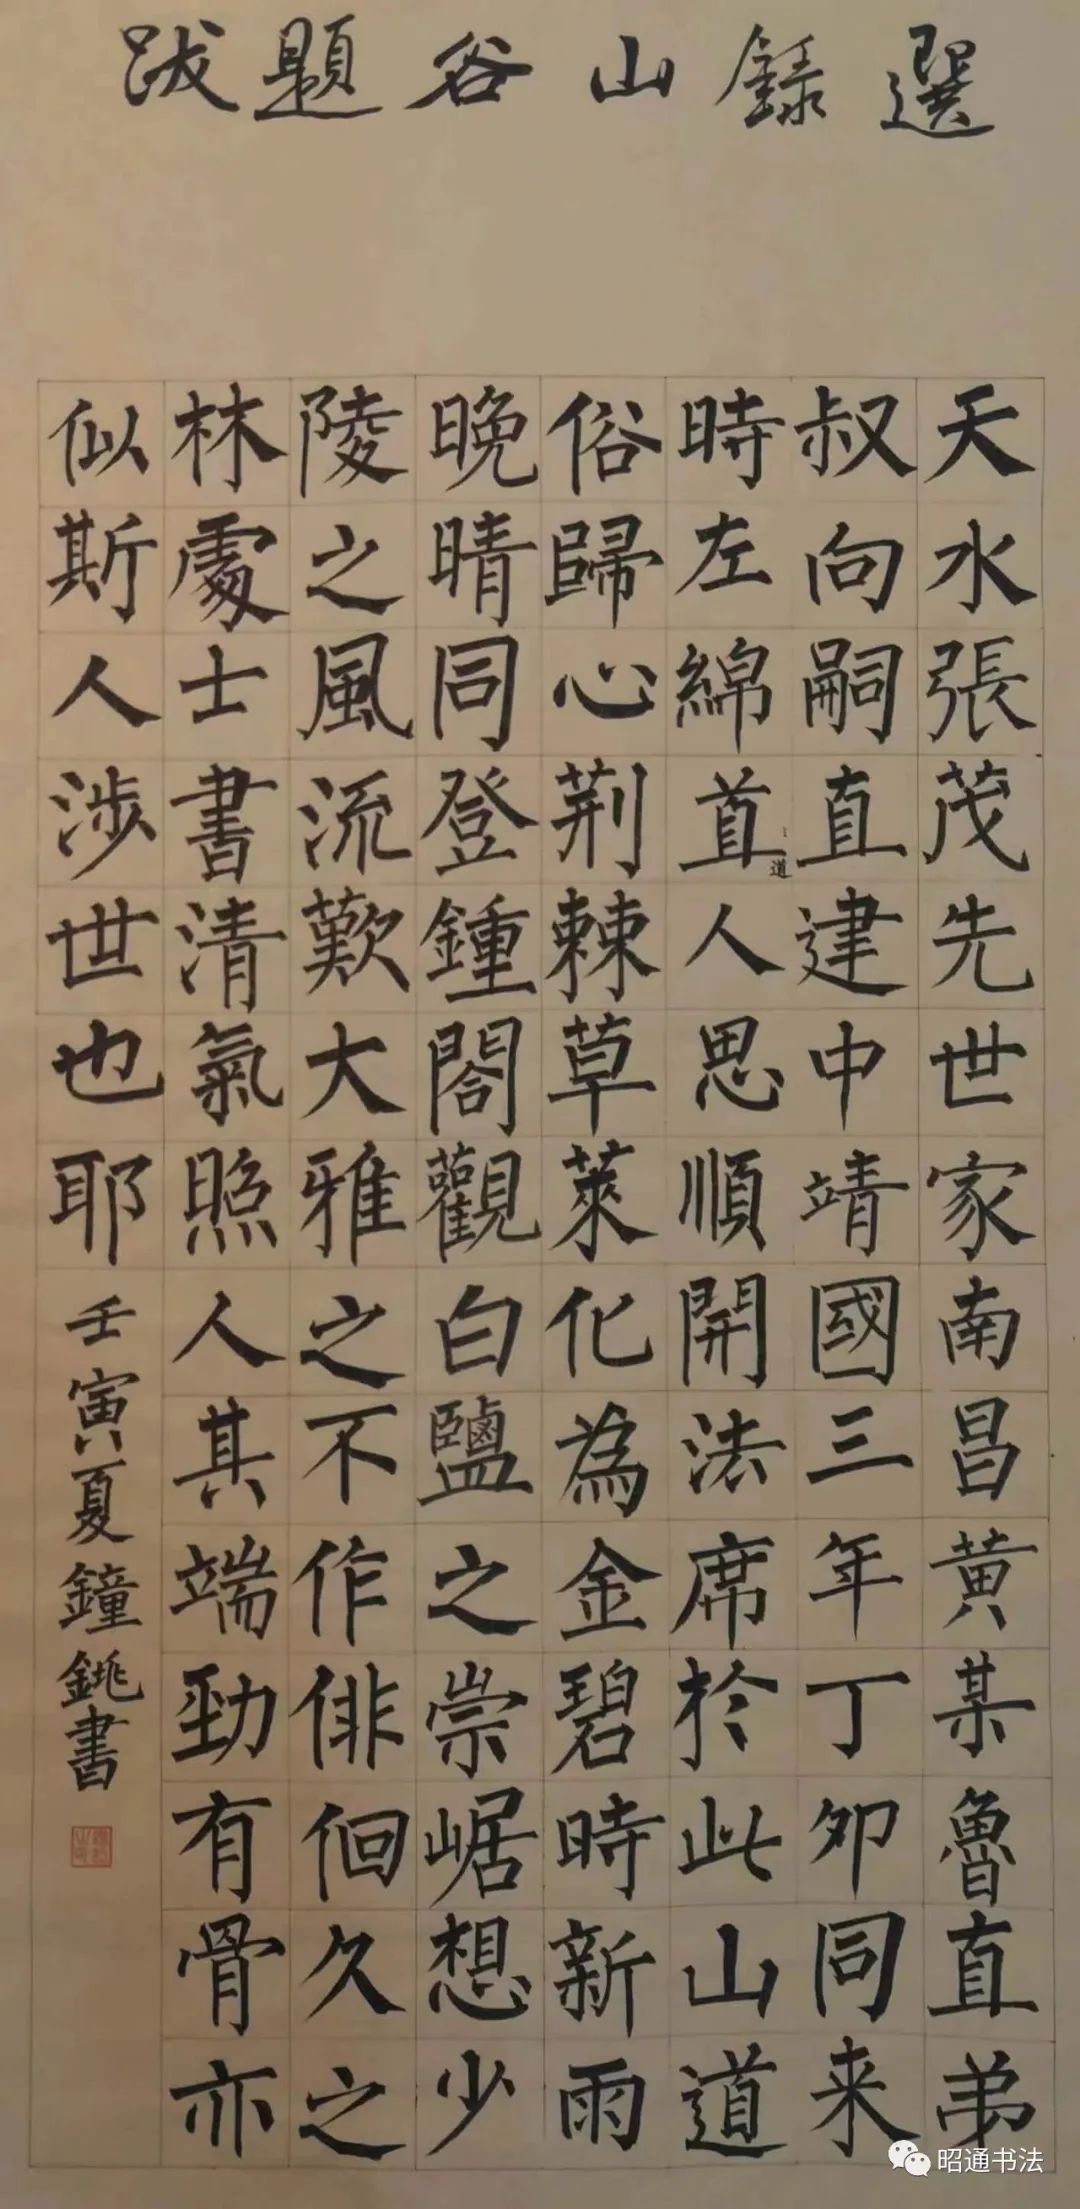 選錄山谷題跋
天水張茂先世家南昌黄某魯直弟
叔向嗣直建中靖國三年丁卯同来
時左綿直人思順開法席於此山道
道
俗歸心荆棘草萊化為金碧時新雨
晚晴同登鍾閣觀白鹽之崇崌想少
陵之風流歎大雅之不作俳佪久之
林處士書清氣照人其端勁有骨亦
似斯人涉世也耶
壬寅夏鐘銚書
昭通书法